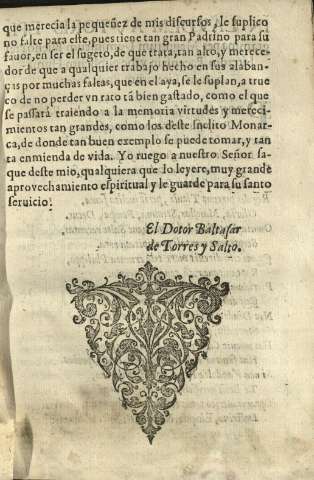 que merecia la pequeñez de mis discursos, le suplico
no falte para este, pues tiene tan gran Padrino para su
fauor, en ser el sugeto, de que trata, tan alto, y merece-
dor de que a qualquier trabajo hecho en sus alaban-
ças por muchas faltas, que en el aya, se le suplan, a true
co de no perder vn rato tã bien gastado, como el que
se passarà traiendo a la memoria virtudes y mereci-
mientos tan grandes, como los deste Inclito Monar-
ca, de donde tan buen exemplo se puede tomar, y tan
ta enmienda de vida. Yo ruego a nuestro Señor sa-
que deste mio, qualquiera que lo leyere, muy grande
aprovechamiento espiritual y le guarde para su santo
seruicio.
El Dotor Baltasar
de Torres y Salto.